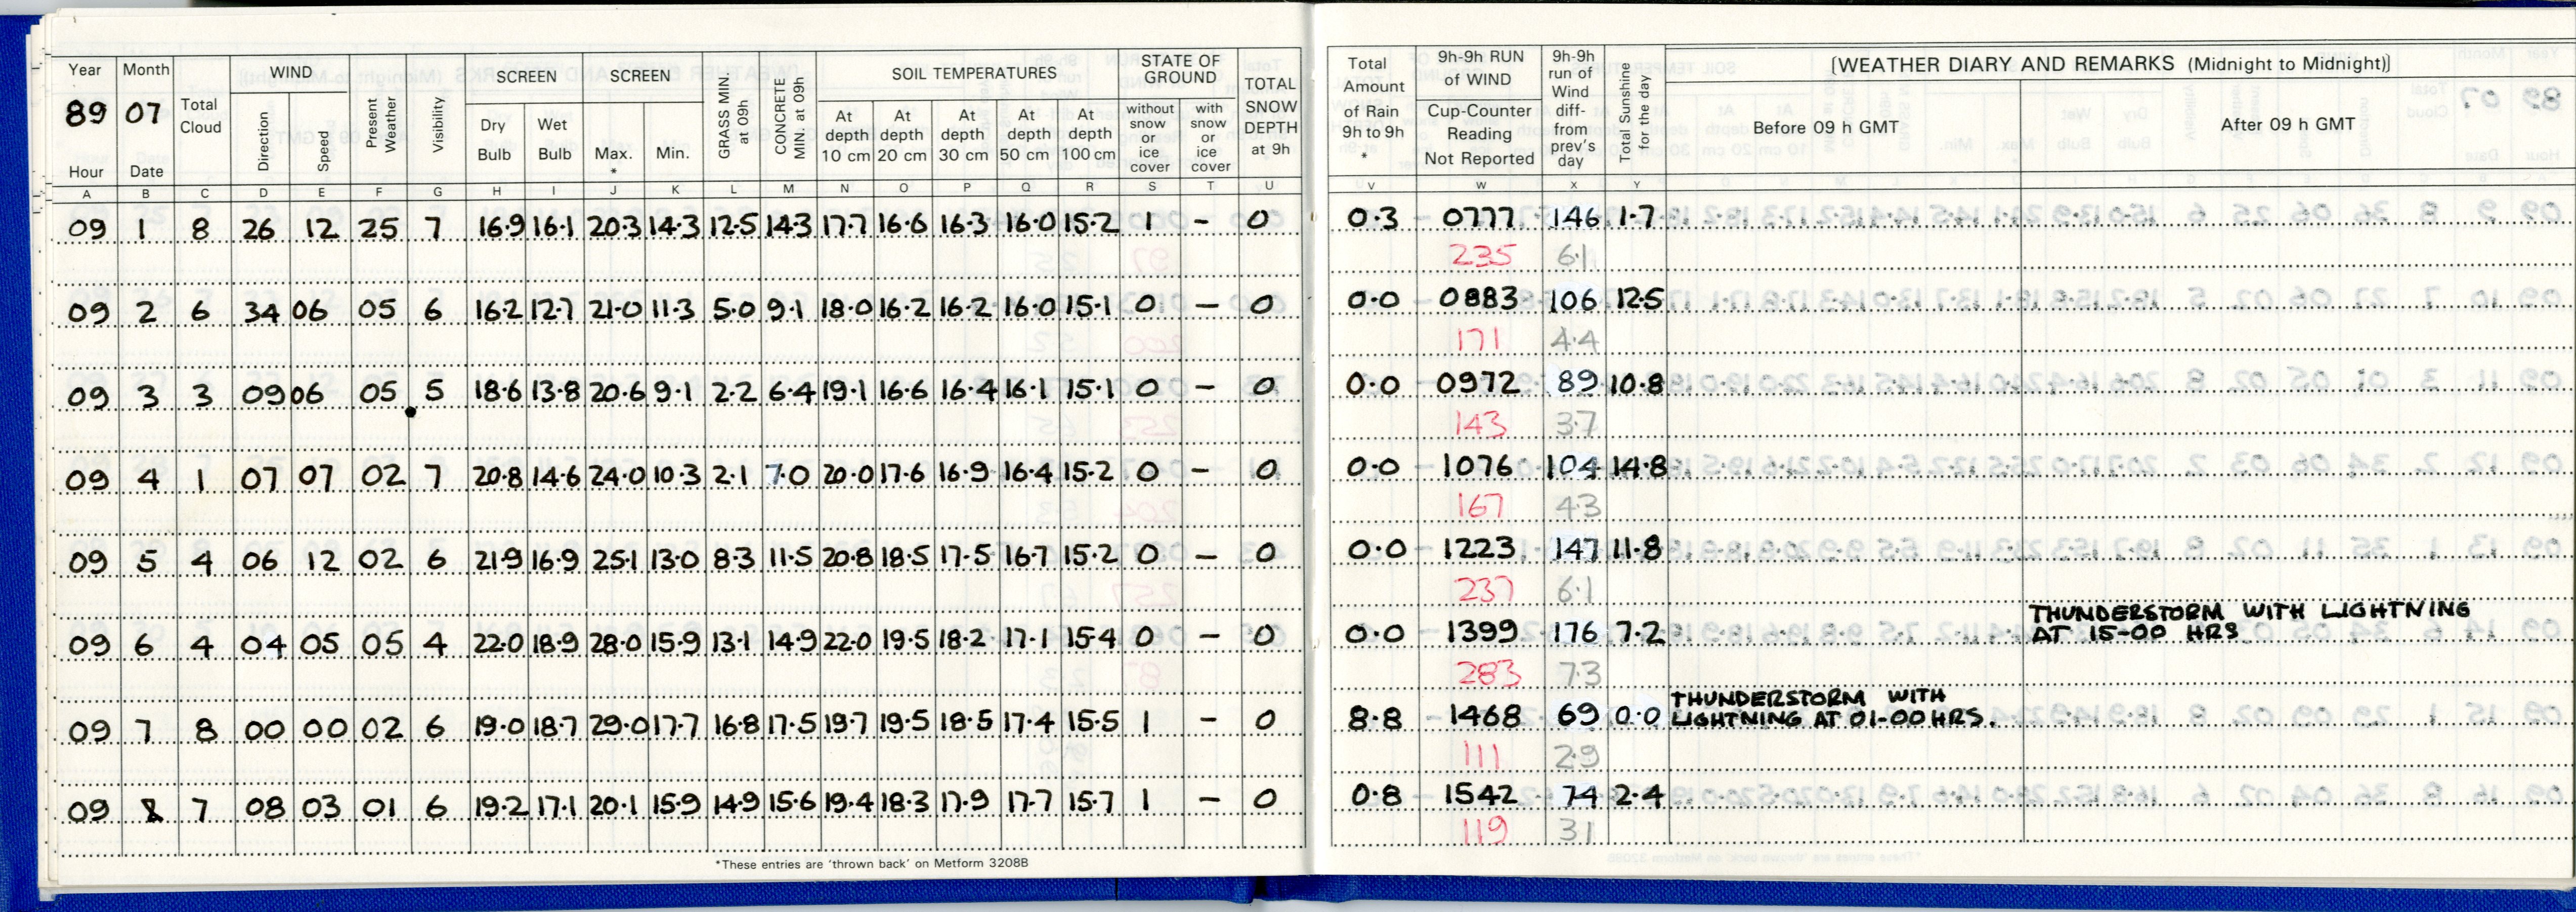 Year Month WIND SCREEN SCREEN GRASS MIN. at 09h CONCRETE MIN. at 09h SOIL TEMPERATURES STATE OF GROUND TOTAL SNOW DEPTH at 9h
89 07 Total Cloud Direction Speed Present Weather Visibility Dry Bulb Wet Bulb Max. * Min. At depth 10 cm At depth 20 cm At depth 30 cm At depth 50 cm At depth 100 cm without snow or ice cover with snow or ice cover
Hour Date
A B C D E F G H I J K L M N O P Q R S T U
09 1 8 26 12 25 7 16.9 16.1 20.3 14.3 12.5 14.3 17.7 16.6 16.3 16.0 15.2 1 – 0
09 2 6 34 06 05 6 16.2 12.7 21.0 11.3 5.0 9.1 18.0 16.2 16.2 16.0 15.1 0 – 0
09 3 3 09 06 05 5 18.6 13.8 20.6 9.1 2.2 6.4 19.1 16.6 16.4 16.1 15.1 0 – 0
09 4 1 07 07 02 7 20.8 14.6 24.0 10.3 2.1 7.0 20.0 17.6 16.9 16.4 15.2 0 – 0
09 5 4 06 12 02 6 21.9 16.9 25.1 13.0 8.3 11.5 20.8 18.5 17.5 16.7 15.2 0 – 0
09 6 4 04 05 05 4 22.0 18.9 28.0 15.9 13.1 14.9 22.0 19.5 18.2 17.1 15.4 0 – 0
09 7 8 00 00 02 6 19.0 18.7 29.0 17.7 16.8 17.5 19.7 19.5 18.5 17.4 15.5 1 – 0
09 8 7 08 03 01 6 19.2 17.1 20.1 15.9 14.9 15.6 19.4 18.3 17.9 17.7 15.7 1 – 0
*These entries are 'thrown back' on Metform 3208B
Total Amount of Rain 9h to 9h * 9h-9h RUN of WIND 9h-9h run of Wind diff- from prev's day Total Sunshine for the day [WEATHER DIARY AND REMARKS (Midnight to Midnight)]
Cup-Counter Reading Not Reported Before 09 h GMT After 09 h GMT
V W X Y
0.3 0777 146 1.7
235 6.1
0.0 0883 106 12.5
171 4.4
0.0 0972 89 10.8
143 3.7
0.0 1076 104 14.8
167 4.3
0.0 1223 147 11.8
237 6.1
THUNDERSTORM WITH LIGHTNING
0.0 1399 176 7.2 AT 15-00 HRS
283 7.3
THUNDERSTORM WITH
8.8 1468 69 0.0 LIGHTNING AT 01-00 HRS.
111 2.9
0.8 1542 74 2.4
119 3.1